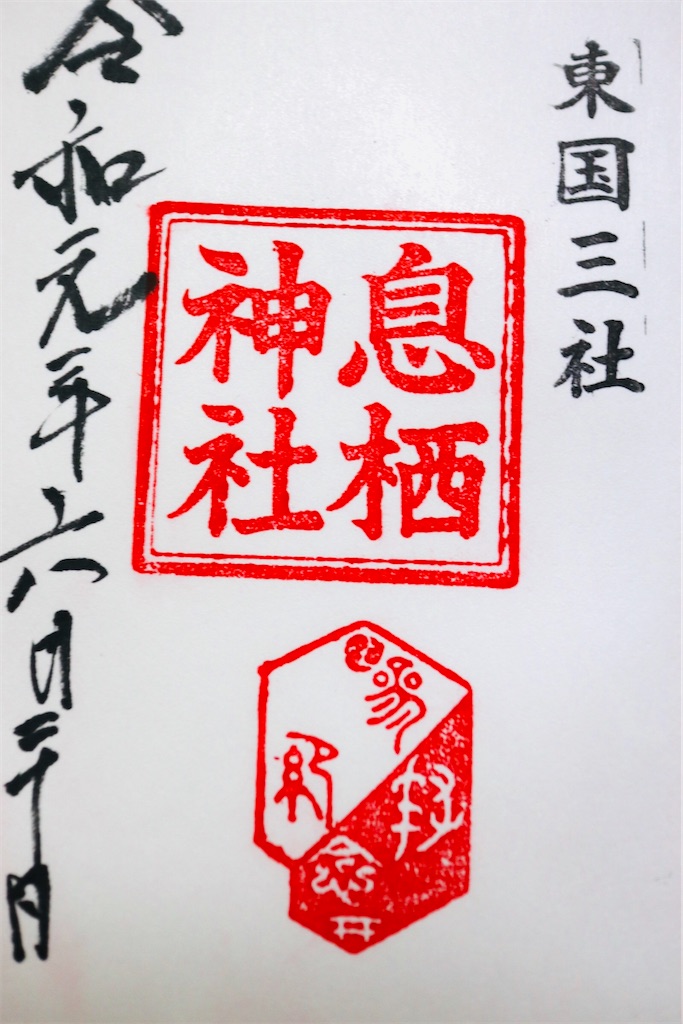 東国三社
息栖
神社
令和元年六月二十日